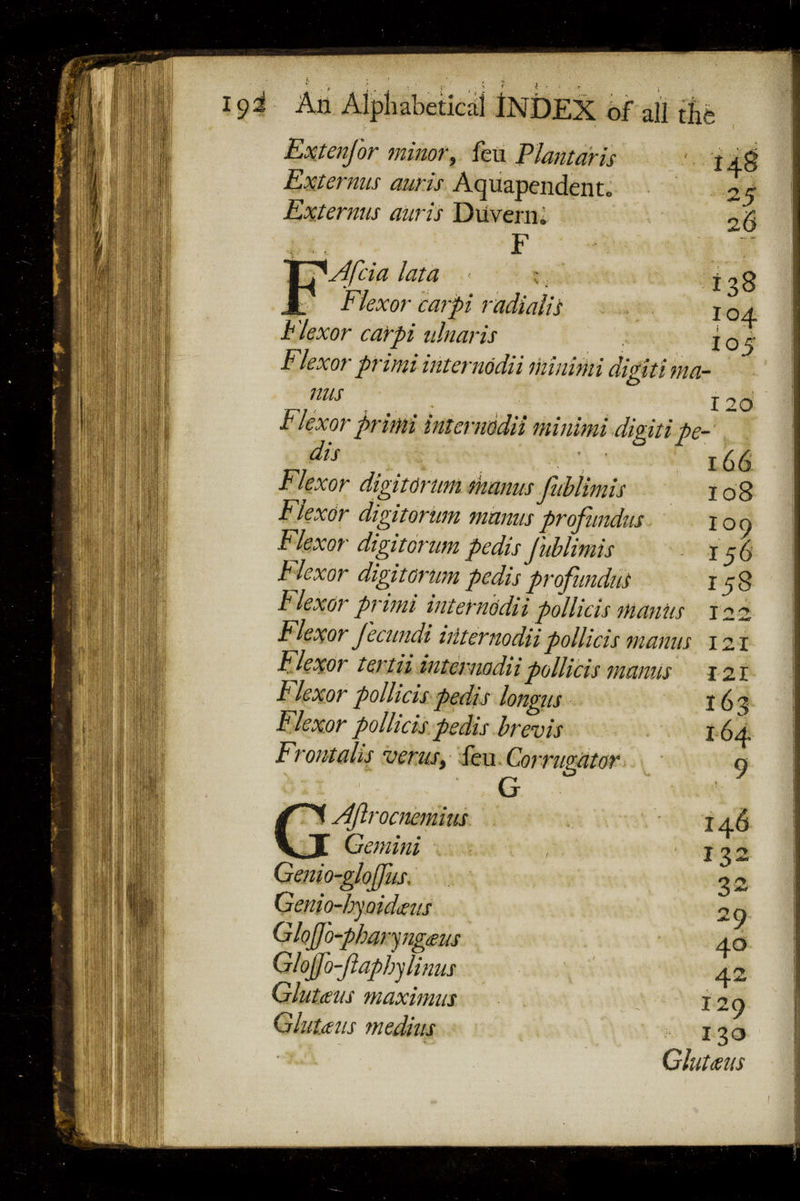 192 An Alphabetical INDEX of all the
Extenſor minor, ſeu Plantaris 148
Externus auris Aquapendent. 25
Externus auris Duvern. 26
F
FAſcia lata 138
Flexor carpi radialis 104
Flexor carpi ulnaris 105
Flexor primi internodii minimi digiti ma-
nus 120
Flexor primi internodii minimi digiti pe-
dis 166
Flexor digitorum manus ſublimis 108
Flexor digitorum manus profundus 109
Flexor digitorum pedis ſublimis 156
Flexor digitorum pedis profundus 158
Flexor primi internodii pollicis manus 122
Flexor ſecundi internodii pollicis manus 121
Flexor tertii internodii pollicis manus 121
Flexor pollicis pedis longus 163
Flexor pollicis pedis brevis 164
Frontalis verus, ſeu Corrugator 9
G
GAſtrocnemius 146
Gemini 132
Genio-gloſſus. 32
Genio-hyoidæus 29
Gloſſo-pharyngæus 40
Gloſſo-ſtaphylinus 42
Glutæus maximus 129
Glutæus medius 130
Glutæus